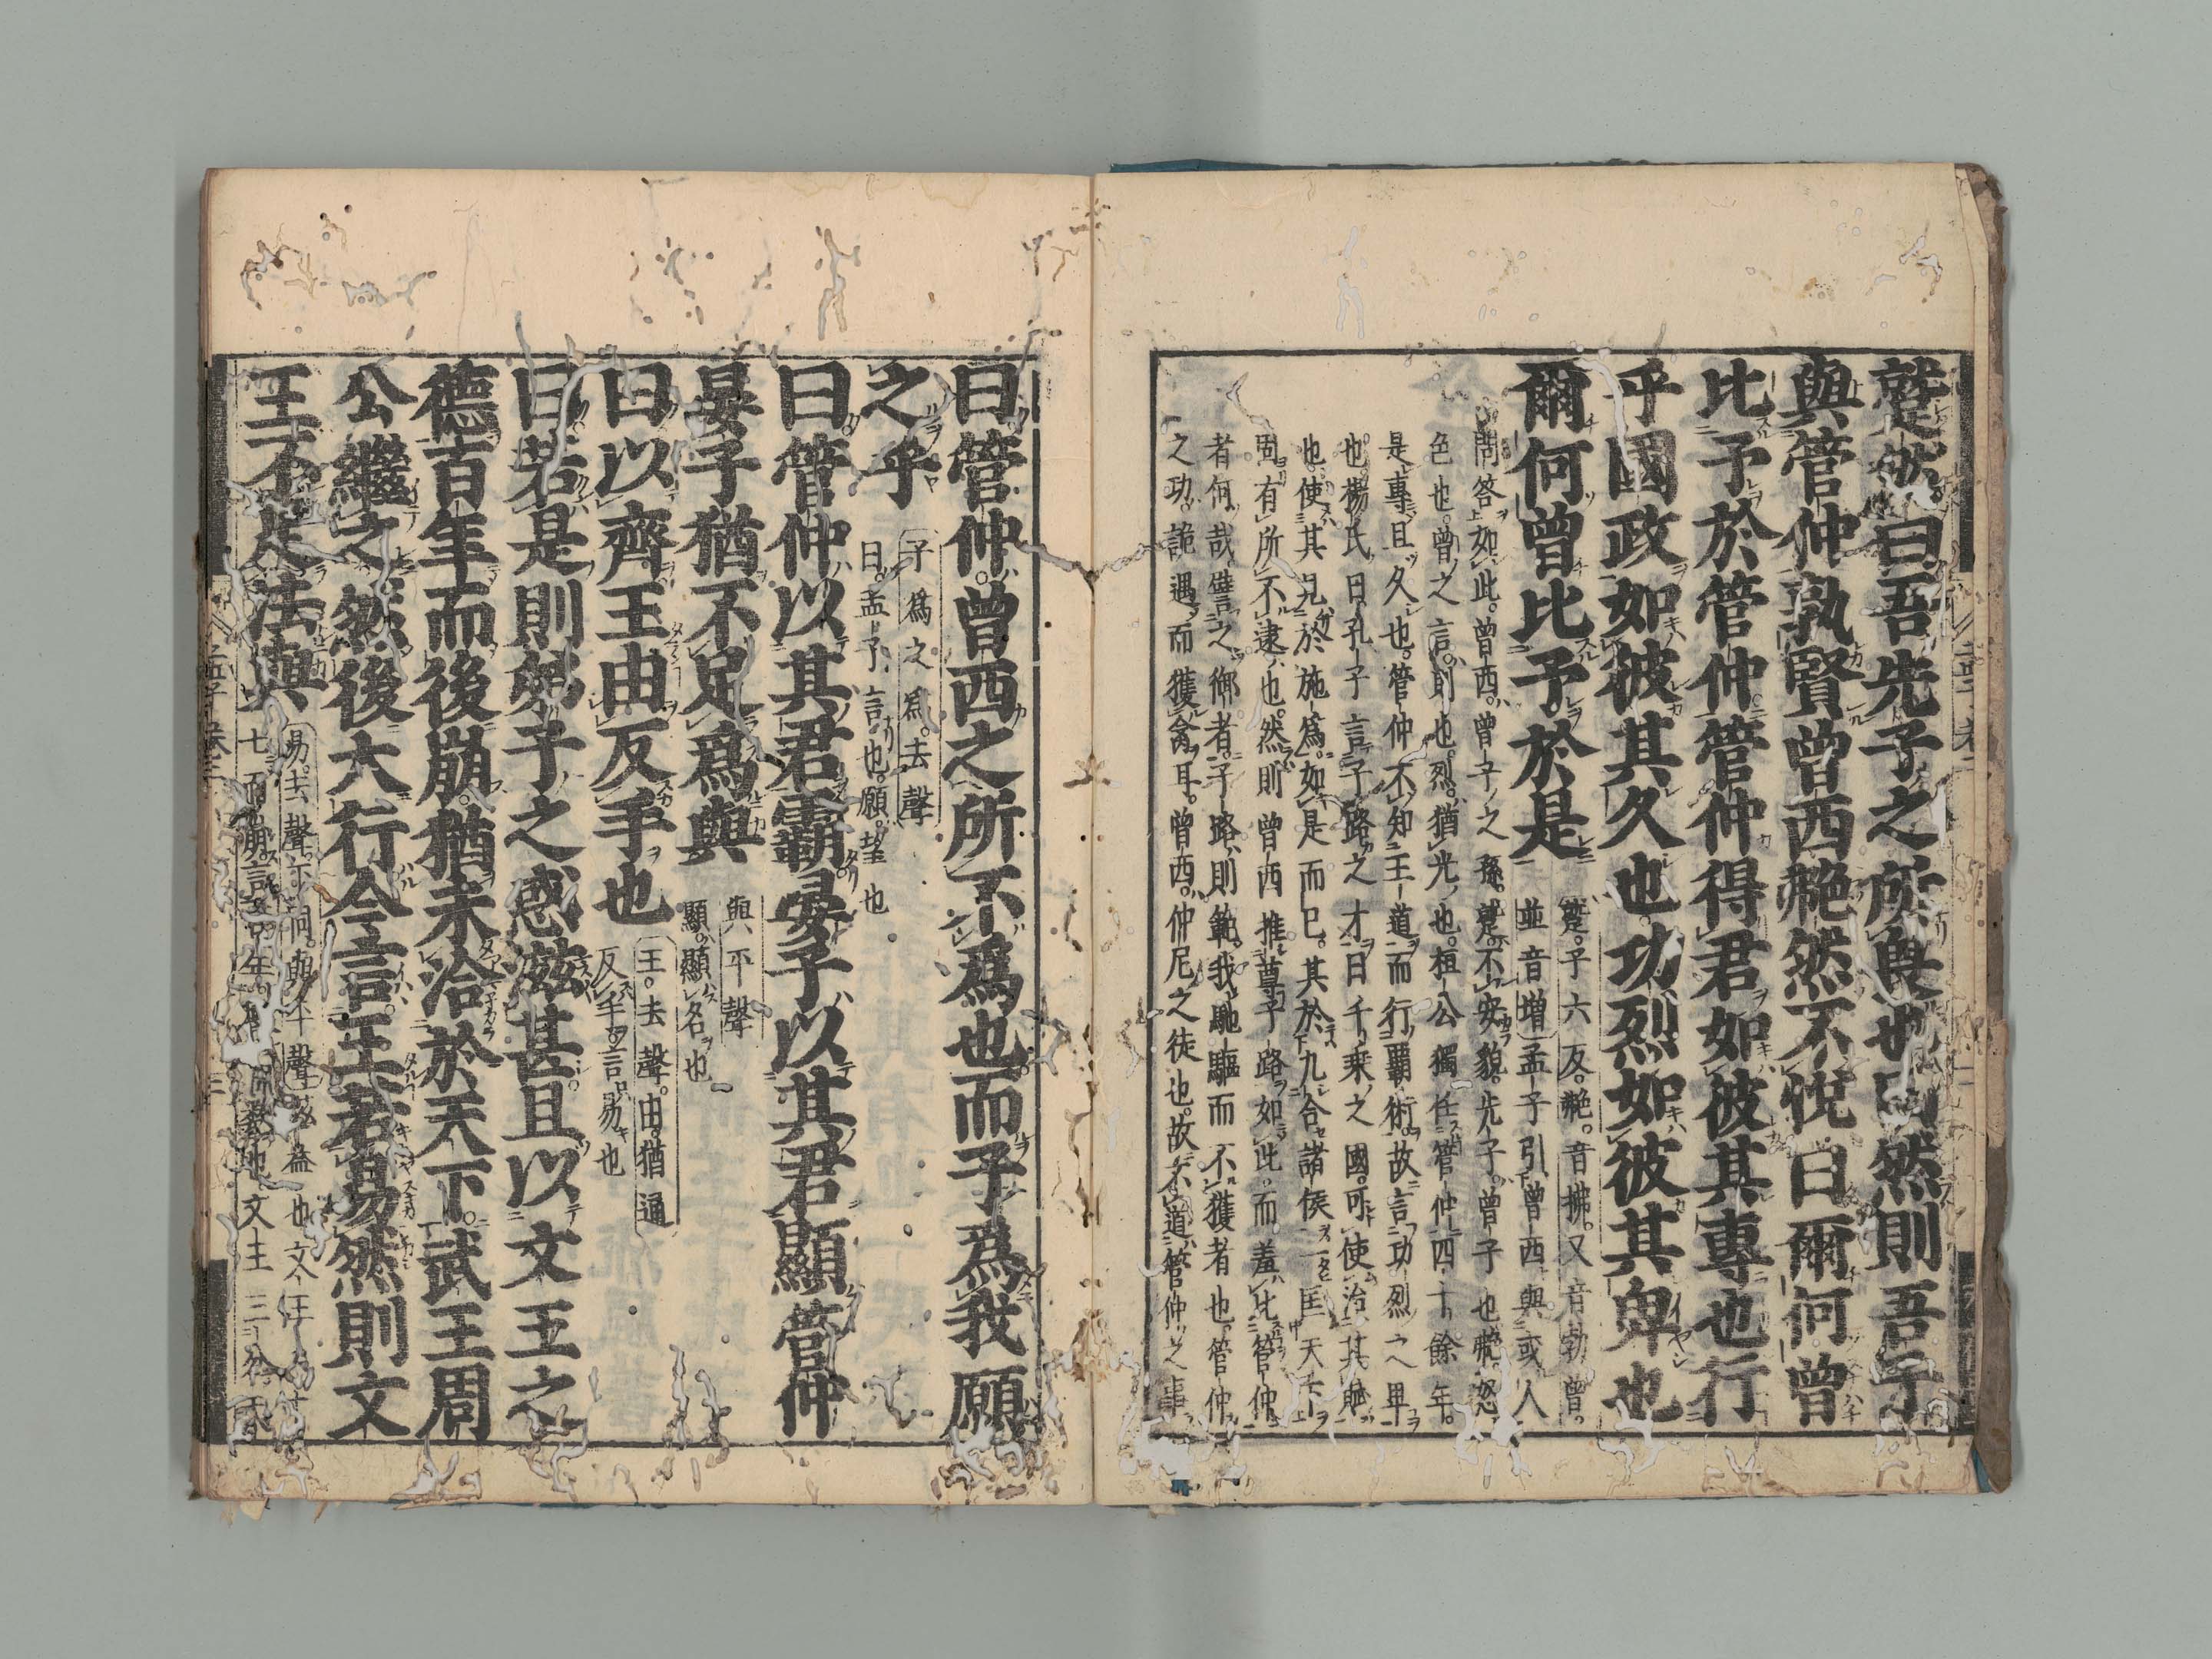 蹵然曰吾先子之所畏也曰然則吾子
與管仲孰賢曾西艴然不悅曰爾何曾
比予於管仲管仲得君如彼其專也行
乎國政如彼其久也功烈如彼其卑也
爾何曾比予於是
蹵。子六反。艴。音拂。又音勃。曾。
並音增孟子引曾西與或人
問答如此。曾西。曾子之孫。蹵。不安貌。先子。曾子也。艴。怒
色也。曾之言。則也。烈。猶光也。桓公獨任管仲四十餘年。
是專且久也。管仲不知王道而行覇術。故言功烈之卑
也。楊氏曰孔子言子路之才曰千乘之國。可使治其賦
也。使其見於施爲。如是而已。其於九合諸侯一匡天下
固有所不逮也。然則曾西推尊子路如此。而羞比管仲
者何哉。譬之御者。子路則範我馳驅而不獲者也。管仲
之功。詭遇而獲禽耳。曾西。仲尼之徒也。故不道管仲之事
曰管仲。曾西之所不爲也而子爲我願
之乎
子爲之爲。去聲
曰。孟子言也。願。望也
曰管仲以其君霸晏子以其君顯管仲
晏子猶不足爲與
與平聲
顯。顯名也
曰以齊王由反手也
王。去聲。由。猶通
反手。言易也
曰若是則弟子之惑滋甚且以文王之
德百年而後崩。猶未洽於天下。武王周
公繼之然後大行今言王若易然則文
王不足法與
易。去聲。下同。與平聲滋益也文王九十
七而崩。言百年。擧也文王三分天
孟子卷三